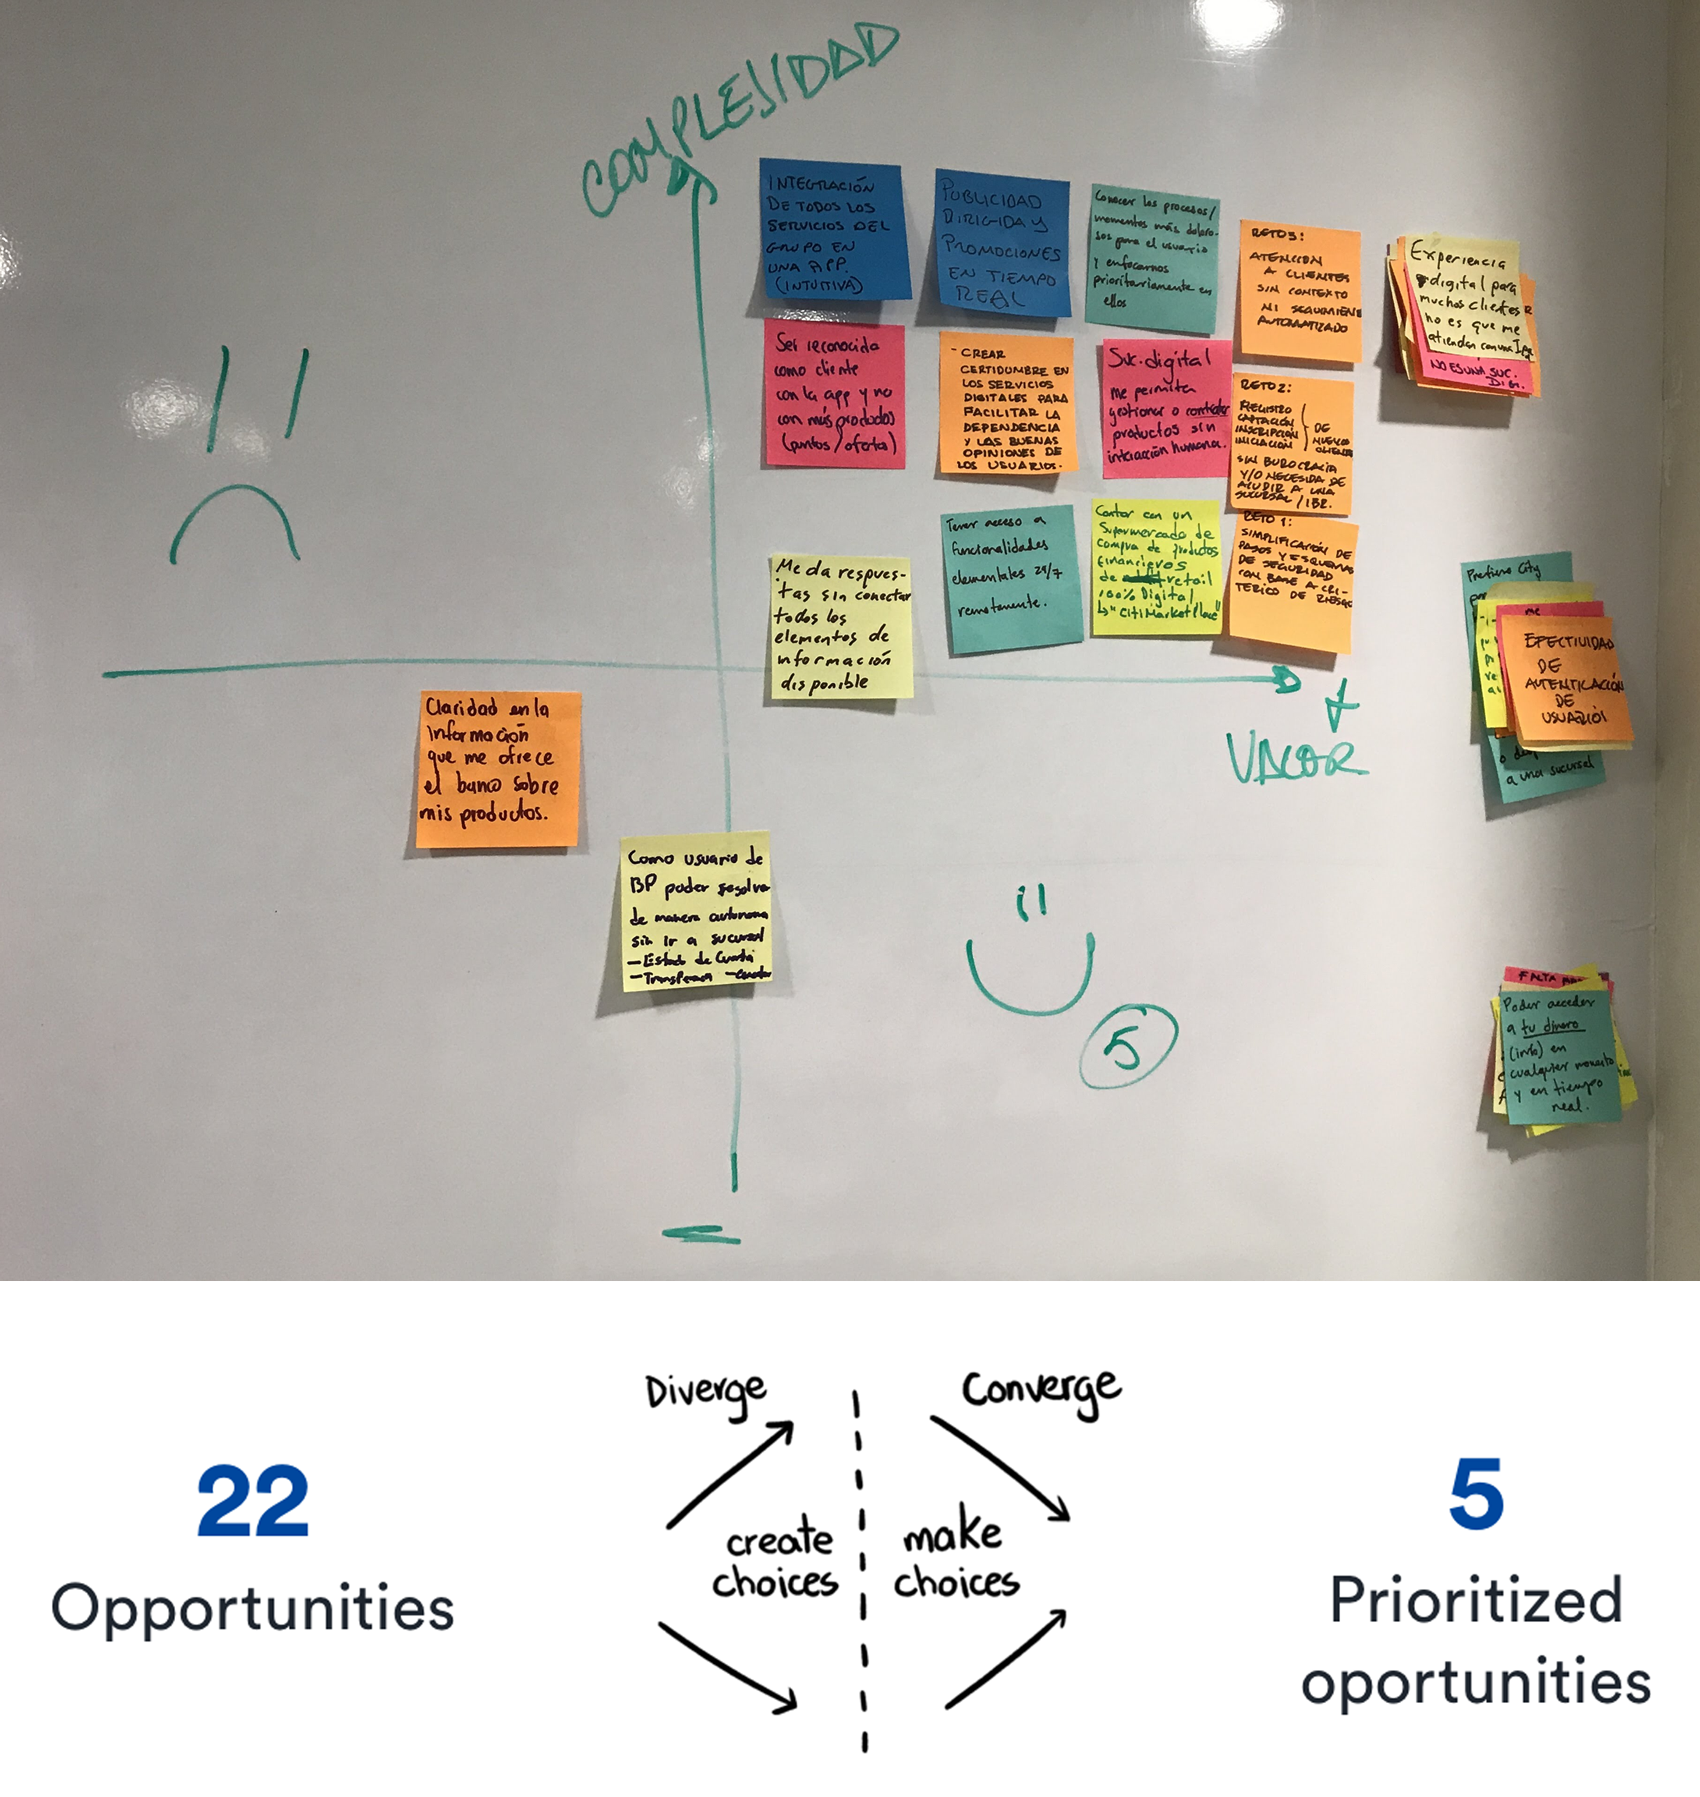 COMPLEJIDAD
INTEGRACIÓN
DE TODOS LOS
SERVICIOS DEL
GRUPO EN
UNA APP.
(INTUITIVA)
PUBLICIDAD
DIRIGIDA Y
PROMOCIONES
EN TIEMPO
REAL
Conocer los procesos/
momentos más doloro-
sos para el usuario
y enfocarnos
prioritariamente en
ellos
RETO 3:
ATENCION
A CLIENTES
SIN CONTEXTO
NI SEGUIMIENTO
AUTOMATIZADO
Experiencia
digital para
muchos clientes
no es que me
atiendan con una
NO ES UNA SUC.
DIG.
Ser reconocida
como cliente
con la app y no
con más productos
(puntos/oferta)
- CREAR
CERTIDUMBRE EN
LOS SERVICIOS
DIGITALES PARA
FACILITAR LA
DEPENDENCIA
Y LAS BUENAS
OPINIONES DE
LOS USUARIOS.
Suc. digital
me permita
gestionar o contratar
productos sin
interacción humana.
RETO 2:
REGISTRO
CAPTACIÓN
INSCRIPCIÓN
INICIACIÓN
DE
NUEVOS
CLIENTES
SIN BUROCRACIA
Y/O NECESIDAD DE
ACUDIR A UNA
SUCURSAL / IBR.
Me da respues-
tas sin conectar
todos los
elementos de
información
disponible
Tener acceso a
funcionalidades
elementales 24/7
remotamente.
Contar con un
Supermercado de
compra de productos
financieros
de retail
100% Digital
↳ "CitiMarketPlace"
RETO 1:
SIMPLIFICACIÓN DE
PASOS Y ESQUEMAS
DE SEGURIDAD
CON BASE A CRI-
TERICO DE RIESGO
Prefiero City
me
EFECTIVIDAD
DE
AUTENTICACIÓN
DE
USUARIOS
a una sucursal
+
VALOR
Claridad en la
información
que me ofrece
el banco sobre
mis productos.
Como usuario de
BP poder resolver
de manera autonoma
sin ir a sucursal
- Estado de Cuenta
- Transferencia
5
FALTA
Poder acceder
a tu dinero
(info) en
cualquier momento
y en tiempo
real.
Diverge
Converge
22
Opportunities
create
choices
make
choices
5
Prioritized
oportunities